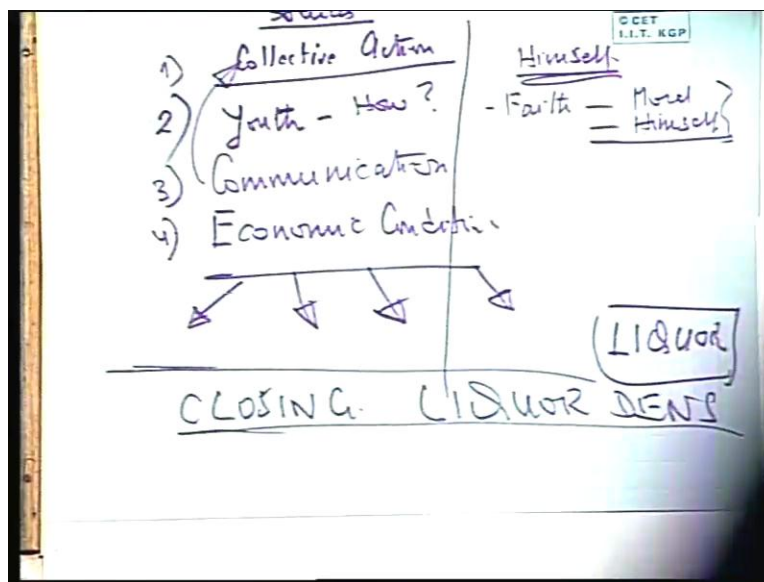 © CET
I.I.T. KGP
1) Collective Action
2) Youth - How?
3) Communication
4) Economic Condition
Himself
- Faith — Moral
— Himself
LIQUOR
CLOSING LIQUOR DENS